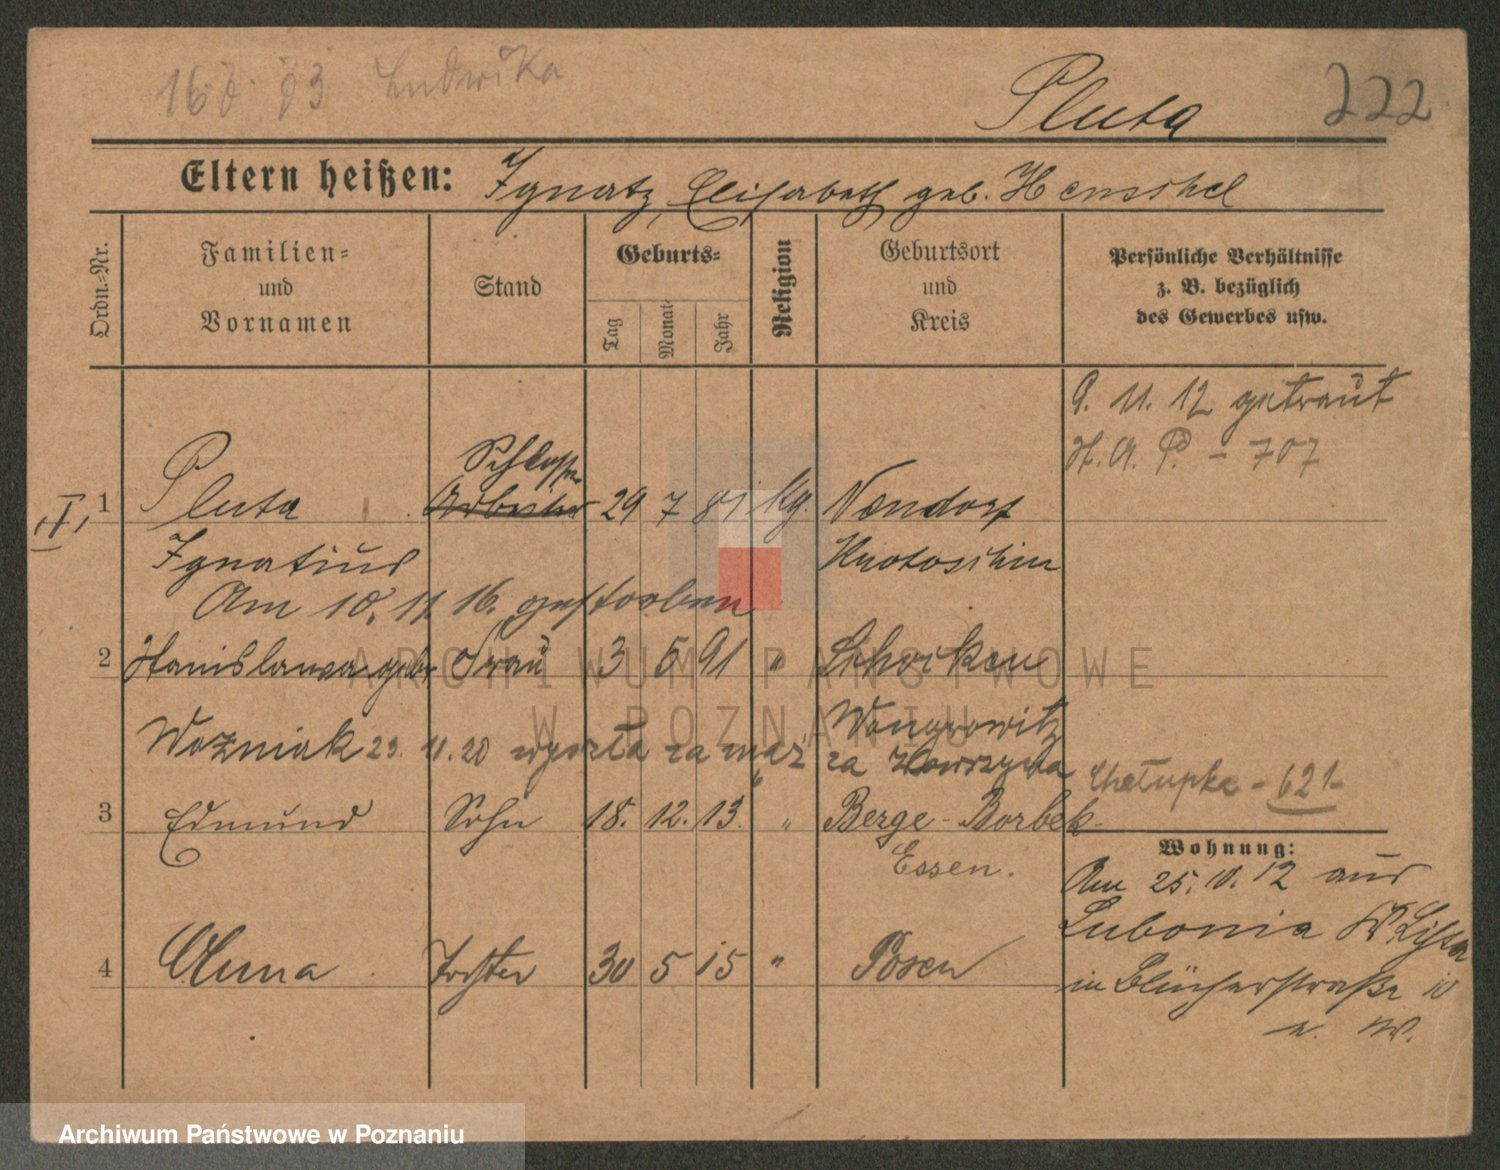 Ludwika
Pluta
222
Eltern heißen: Ignatz, Elisabeth geb. Henschel
Ordn.-Nr.
Familien- und Vornamen
Stand
Geburts-
Tag
Monat
Jahr
Religion
Geburtsort und Kreis
Persönliche Verhältnisse
z. B. bezüglich
des Gewerbes usw.
9. 11. 12 getraut
H. A. P. - 707
Schlosser
I
1 Pluta Arbeiter 29 7 81 kg. Neudorf
Ignatius Krotoschin
Am 10. 11. 16. gestorben
2 Stanislawa geb. Frau 3 5 91 " Schocken
Wongrowitz
Wozniak 23. 11. 20 wyszła za mąż za
Chałupka - 621-
3 Edmund Sohn 18. 12. 13. " Berge-Borbek-
Essen.
Wohnung:
Am 25. 10. 12 aus
Lubonia Kr. Lissa
4 Anna Tochter 30 5 15 " Posen
in Blücherstraße 10
a. W.
ARCHIWUM PAŃSTWOWE
W POZNANIU
Archiwum Państwowe w Poznaniu